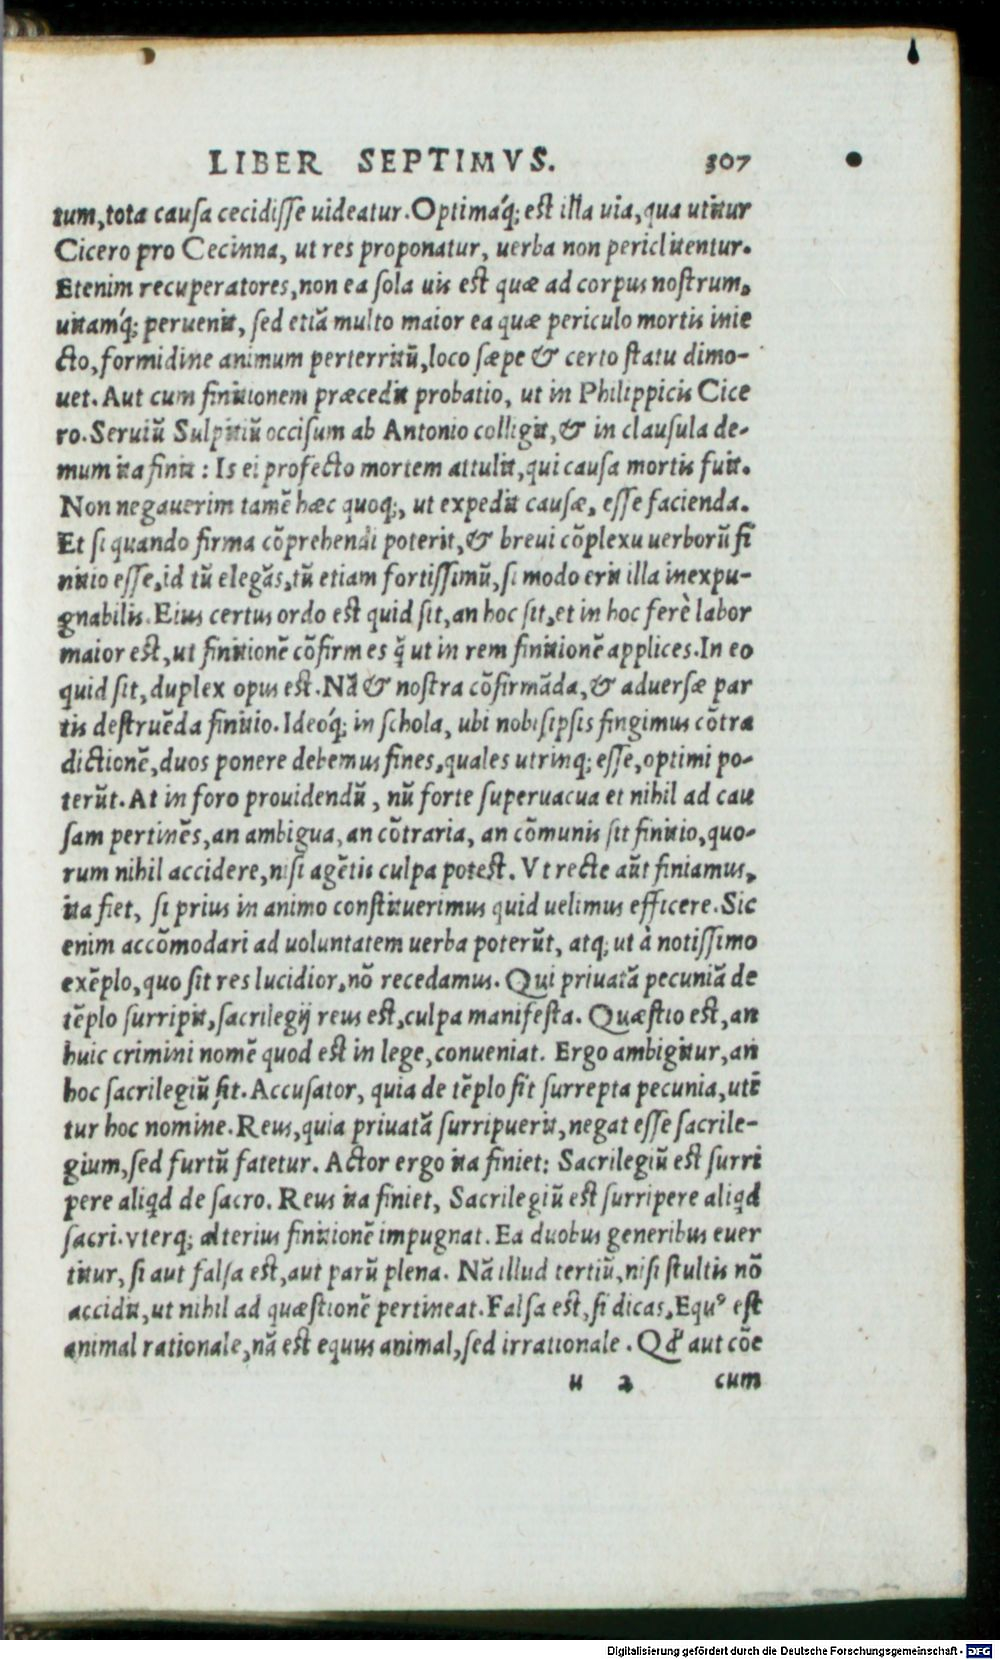 LIBER SEPTIMVS. 307
tum, tota causa cecidisse uideatur. Optimáq; est illa uia, qua utitur
Cicero pro Cecinna, ut res proponatur, uerba non periclitentur.
Etenim recuperatores, non ea sola uis est quæ ad corpus nostrum,
uitamq́; peruenit, sed etiã multo maior ea quæ periculo mortis inie
cto, formidine animum perterritũ, loco sæpe & certo statu dimo-
uet. Aut cum finitionem præcedit probatio, ut in Philippicis Cice
ro. Seruiũ Sulpitiũ occisum ab Antonio colligit, & in clausula de-
mum ita finit : Is ei profecto mortem attulit, qui causa mortis fuit.
Non negauerim tamẽ hæc quoq;, ut expedit causæ, esse facienda.
Et si quando firma cõprehendi poterit, & breui cõplexu uerborũ fi
nitio esse, id tũ elegãs, tũ etiam fortissimũ, si modo erit illa inexpu-
gnabilis. Eius certus ordo est quid sit, an hoc sit, et in hoc ferè labor
maior est, ut finitionẽ cõfirmes q̃ ut in rem finitionẽ applices. In eo
quid sit, duplex opus est. Nã & nostra cõfirmãda, & aduersæ par
tis destruẽda finitio. Ideoq́; in schola, ubi nobisipsis fingimus cõtra
dictionẽ, duos ponere debemus fines, quales utrinq; esse, optimi po-
terũt. At in foro prouidendũ, nũ forte superuacua et nihil ad cau
sam pertinẽs, an ambigua, an cõtraria, an cõmunis sit finitio, quo-
rum nihil accidere, nisi agẽtis culpa potest. Vt recte aũt finiamus,
ita fiet, si prius in animo constituerimus quid uelimus efficere. Sic
enim accõmodari ad uoluntatem uerba poterũt, atq; ut à notissimo
exẽplo, quo sit res lucidior, nõ recedamus. Qui priuatã pecuniã de
tẽplo surripit, sacrilegij reus est, culpa manifesta. Quæstio est, an
huic crimini nomẽ quod est in lege, conueniat. Ergo ambigitur, an
hoc sacrilegiũ sit. Accusator, quia de tẽplo sit surrepta pecunia, utĩ
tur hoc nomine. Reus, quia priuatã surripuerit, negat esse sacrile-
gium, sed furtũ fatetur. Actor ergo ita finiet: Sacrilegiũ est surri
pere aliqd de sacro. Reus ita finiet, Sacrilegiũ est surripere aliqd
sacri. vterq; alterius finitionẽ impugnat. Ea duobus generibus euer
titur, si aut falsa est, aut parũ plena. Nã illud tertiũ, nisi stultis nõ
accidit, ut nihil ad quæstionẽ pertineat. Falsa est, si dicas, Equꝰ est
animal rationale, nã est equus animal, sed irrationale. Qđ aut cõe
u 2 cum
Digitalisierung gefördert durch die Deutsche Forschungsgemeinschaft - DFG